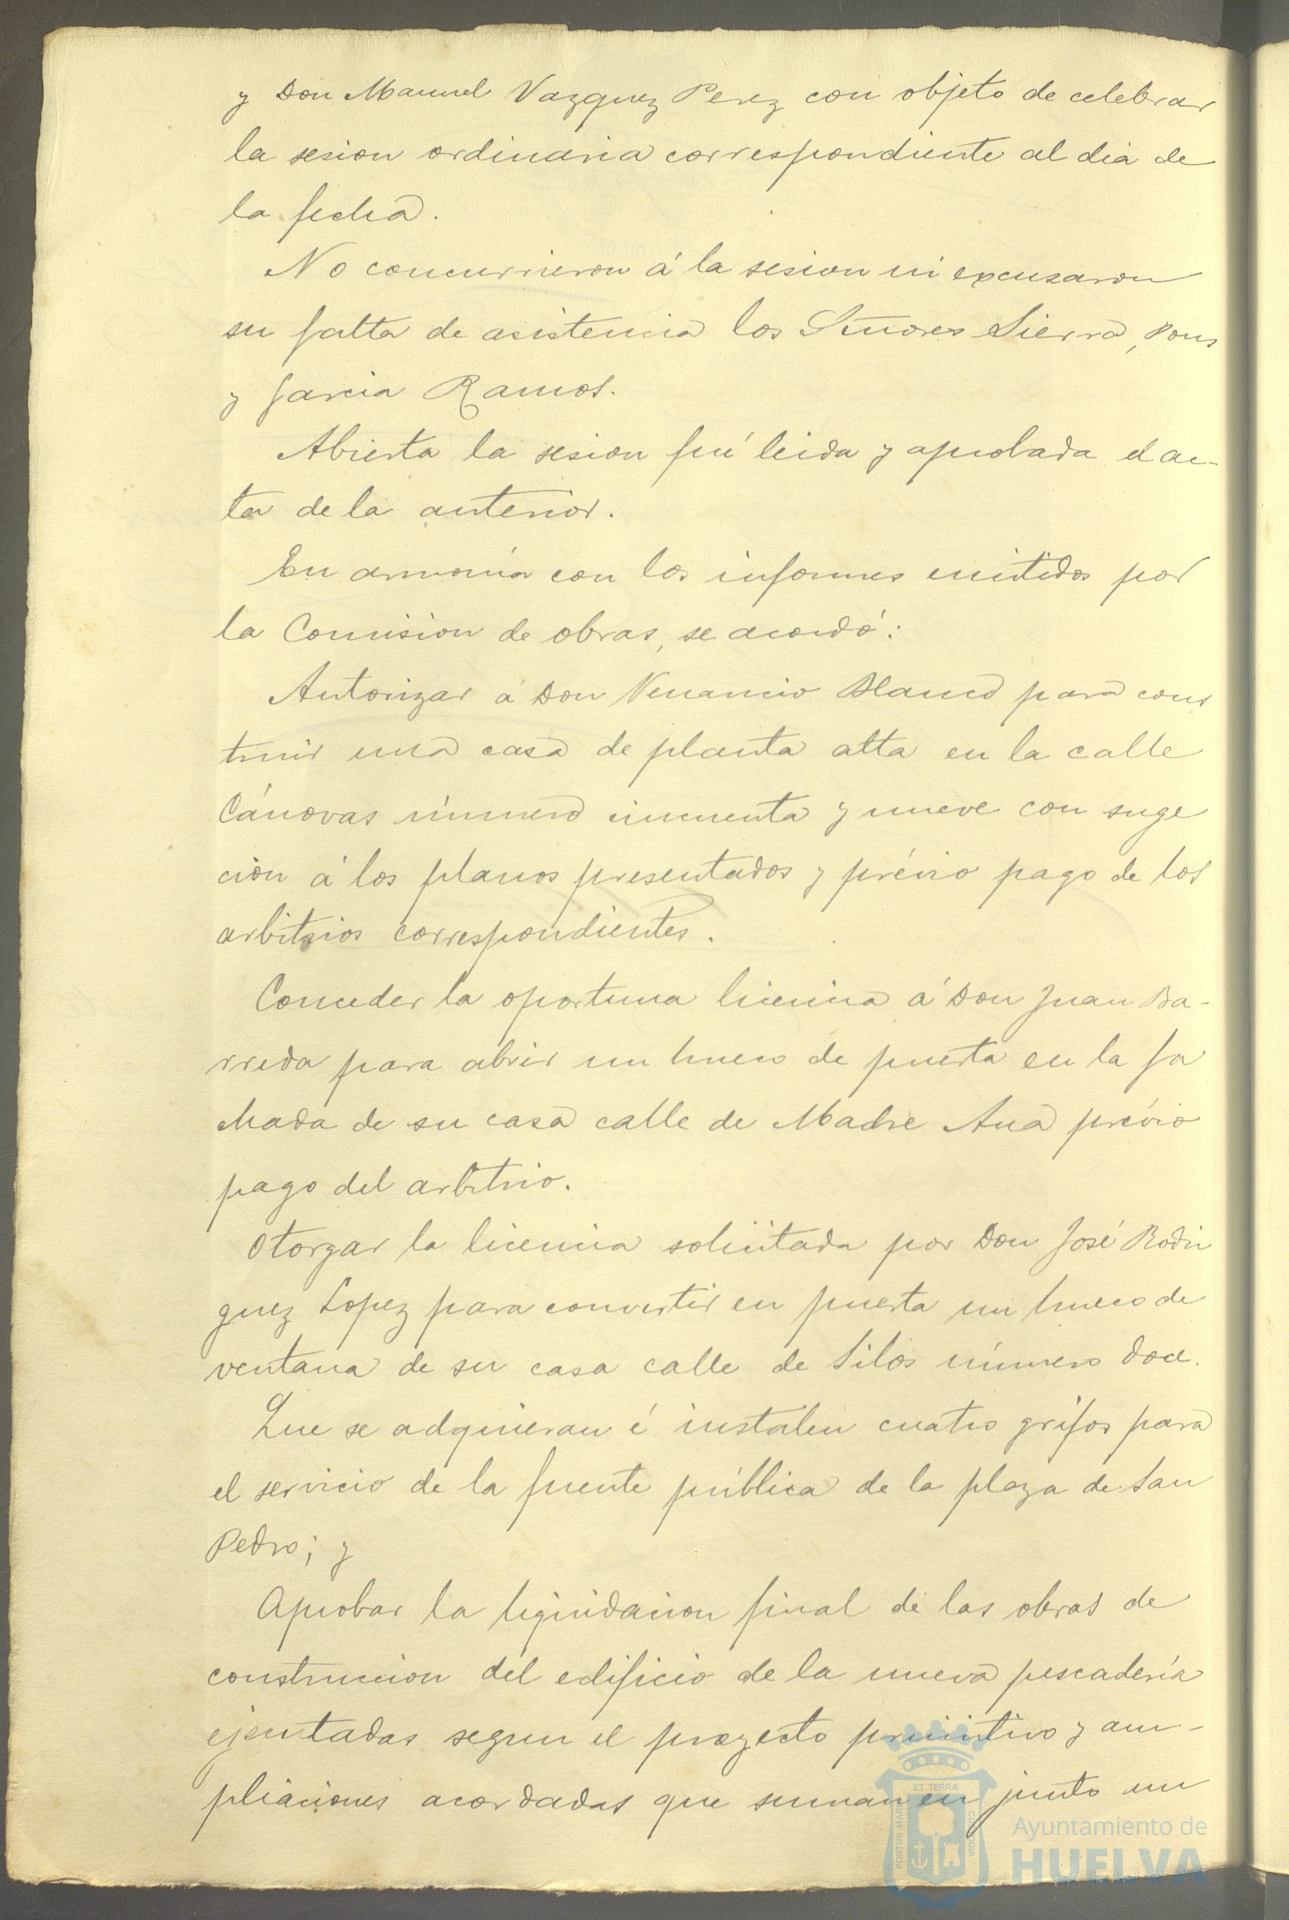 y Don Manuel Vazquez Perez con objeto de celebrar
la sesion ordinaria correspondiente al dia de
la fecha.
No concurrieron á la sesion ni excusaron
su falta de asistencia los Señores Sierra, Pons
y Garcia Ramos.
Abierta la sesion fué leida y aprobada el ac-
ta de la anterior.
En armonía con los informes emitidos por
la Comision de obras, se acordó:
Autorizar á Don Venancio Blanco para cons
truir una casa de planta alta en la calle
Cánovas número cincuenta y nueve con suge
cion á los planos presentados y prévio pago de los
arbitrios correspondientes.
Conceder la oportuna licencia á Don Juan Ba-
rreda para abrir un hueco de puerta en la fa
chada de su casa calle de Madre Ana prévio
pago del arbitrio.
Otorgar la licencia solicitada por Don José Rodri
guez Lopez para convertir en puerta un hueco de
ventana de su casa calle de Silos número doce.
Que se adquieran é instalen cuatro grifos para
el servicio de la fuente pública de la plaza de San
Pedro; y
Aprobar la liquidacion final de las obras de
construccion del edificio de la nueva pescadería
ejecutadas segun el proyecto primitivo y am-
pliaciones acordadas que suman en junto un
ET TERRÆ
PORTUS MARIS
CUSTODIA
Ayuntamiento de
HUELVA